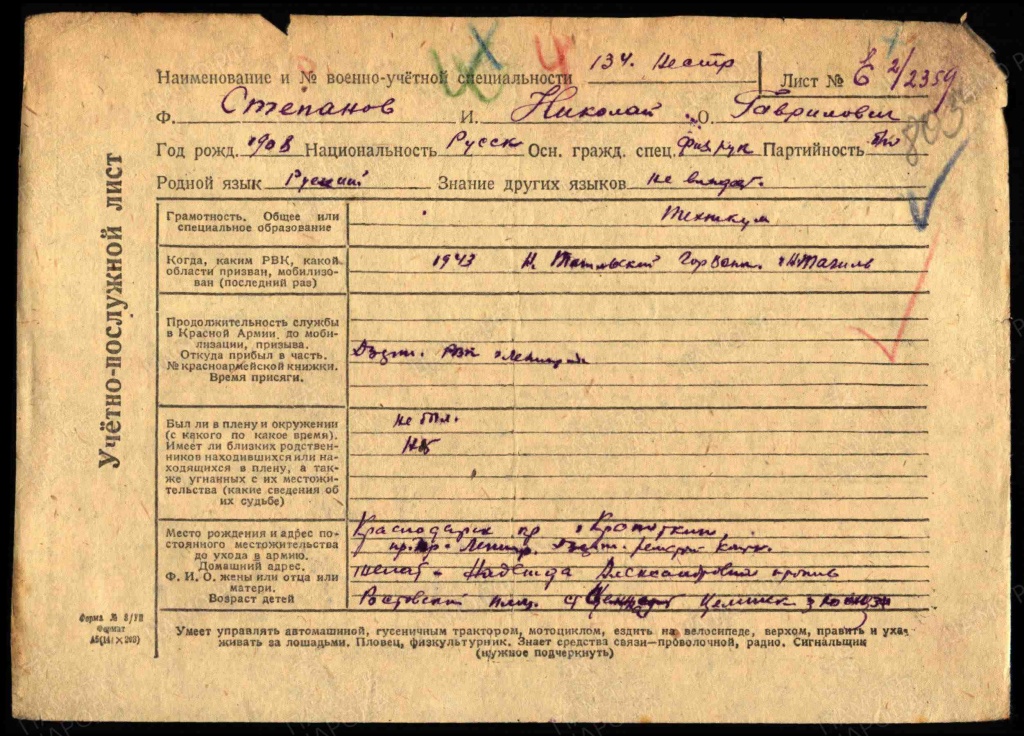 Наименование и № военно-учётной специальности 134.
Лист № 2/2359
Ф. Степанов И. Николай О. Гаврилович
803
Год рожд. 1908 Национальность Русск Осн. гражд. спец. физрук Партийность б/п
Родной язык Русский Знание других языков не владеет.
Учётно-послужной лист
Грамотность. Общее или
специальное образование
Техникум
Когда, каким РВК, какой
области призван, мобилизо-
ван (последний раз)
1943 Н. Тагильский Горвоен. Н Тагиль
Продолжительность службы
в Красной Армии до моби-
лизации, призыва.
Откуда прибыл в часть.
№ красноармейской книжки.
Время присяги.
Дзерж. РВК Ленинград
Был ли в плену и окружении
(с какого по какое время).
Имеет ли близких родствен-
ников находившихся или на-
ходящихся в плену, а так-
же угнанных с их местожи-
тельства (какие сведения об
их судьбе)
не был.
нет
Место рождения и адрес по-
стоянного местожительства
до ухода в армию.
Домашний адрес.
Ф. И. О. жены или отца или
матери.
Возраст детей
Краснодарск кр Кропоткин
Ленингр. Дзерж.
женат - Надежда Александровна
Ростовской ст
Форма № 8/УП
Формат
А5(141×203)
Умеет управлять автомашиной, гусеничным трактором, мотоциклом, ездить на велосипеде, верхом, править и уха-
живать за лошадьми. Пловец, физкультурник. Знает средства связи—проволочной, радио. Сигнальщик
(нужное подчеркнуть)